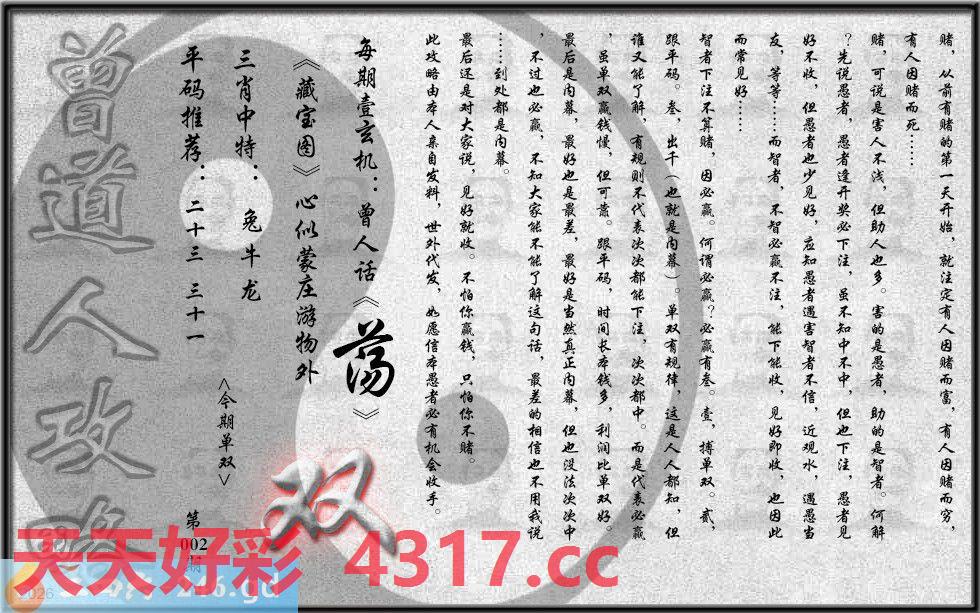 赌，从前有赌的第一天开始，就注定有人因赌而富，有人因赌而穷，
有人因赌而死……
赌，可说是害人不浅，但助人也多。害的是愚者，助的是智者。何解
？先说愚者，愚者逢开奖必下注，虽不知中不中，但也下注，愚者见
好不收，但愚者也少见好，应知愚者遇害智者不信，近观水，遇愚当
友，等等……而智者，不智必赢不注，能下能收，见好即收，也因此
而常见好……
智者下注不算赌，因必赢。何谓必赢？必赢有叁。壹，搏单双。贰，
跟平码。叁，出千（也就是内幕）。单双有规律，这是人人都知，但
谁又能了解，有规则不代表次次都能下注，次次都中。而是代表必赢
，虽单双赢钱慢，但可靠。跟平码，时间长本钱多，利润比单双好。
最后是内幕，最好也是最差，最好是当然真正内幕，但也没法次次中
，不过也必赢，不知大家能不能了解这句话，最差的相信也不用我说
……到处都是内幕。
最后还是对大家说，见好就收。不怕你赢钱，只怕你不赌。
此攻略由本人亲自发料，世外代发，如愿信本愚者必有机会收手。
每期壹玄机：曾人话《荡》
《藏宝图》心似蒙庄游物外
三肖中特：兔牛龙
平码推荐：二十三 三十一
<今期单双>
双
第
002
期
曾道人攻略
天天好彩 4317.cc
2026
246.gd